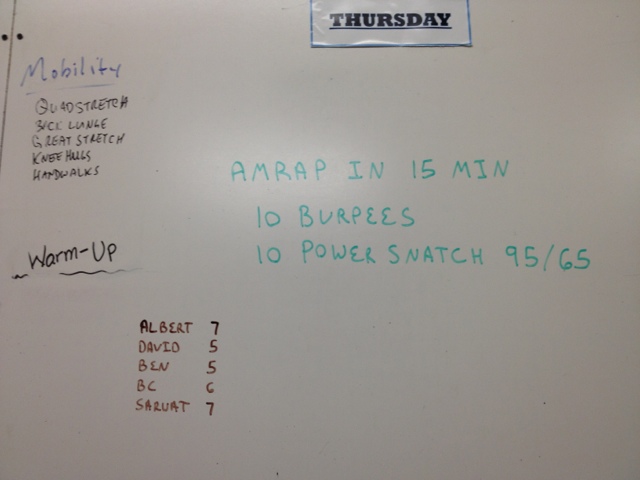 THURSDAY
Mobility
QUADSTRETCH
BACK LUNGE
GREAT STRETCH
KNEE HUGS
HANDWALKS
AMRAP IN 15 MIN
10 BURPEES
10 POWER SNATCH 95/65
Warm-Up
ALBERT 7
DAVID 5
BEN 5
BC 6
SARVAT 7